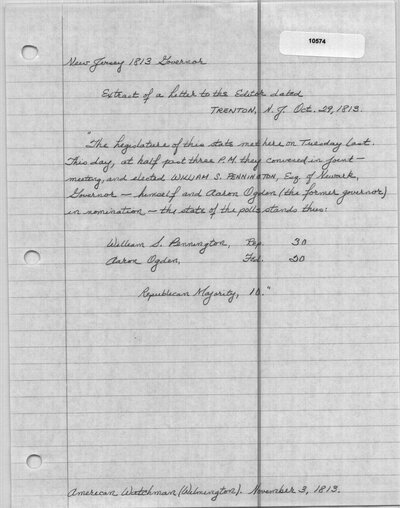 10574
New Jersey 1813 Governor
Extract of a letter to the Editor dated
TRENTON, N.J. Oct. 29, 1813.
"The Legislature of this state met here on Tuesday last.
This day, at half past three P.M. they convened in joint-
meeting, and elected WILLIAM S. PENNINGTON, Esq. of Newark,
Governor - himself and Aaron Ogden (the former governor)
in nomination - the state of the polls stands thus:
William S. Pennington, Rep. 30
Aaron Ogden, Fed. 20
Republican Majority, 10."
American Watchman (Wilmington). November 3, 1813.